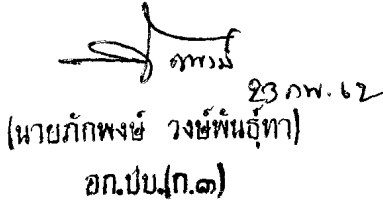 23 กพ. 62
(นายภักพงษ์ วงษ์พันธุ์ทา)
อก.ปบ.(ก.๓)